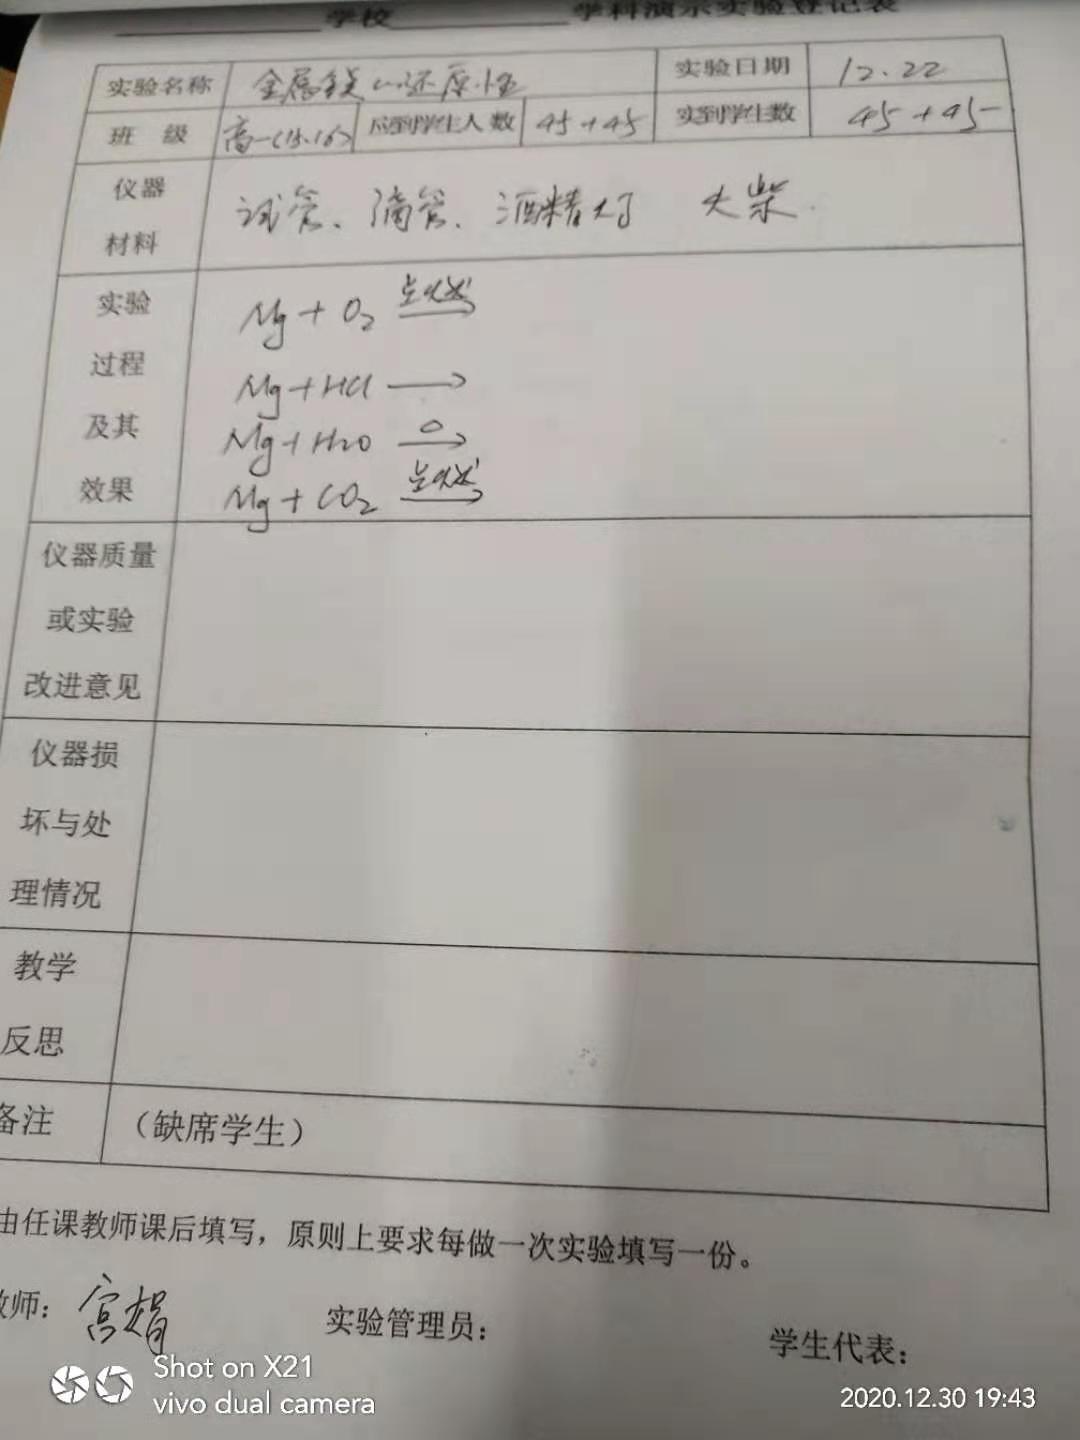 学校 学科演示实验登记表
实验名称 金属镁的还原性 实验日期 12.22
班 级 高一(15.16) 应到学生人数 45+45 实到学生数 45+45
仪器 材料 试管、滴管、酒精灯 火柴.
实验 Mg+O₂ 点燃→
过程 Mg+HCl →
及其 Mg+H₂O △→
效果 Mg+CO₂ 点燃→
仪器质量
或实验
改进意见
仪器损
坏与处
理情况
教学
反思
备注 (缺席学生)
由任课教师课后填写，原则上要求每做一次实验填写一份。
教师: 宫娟 实验管理员: 学生代表:
Shot on X21
vivo dual camera 2020.12.30 19:43